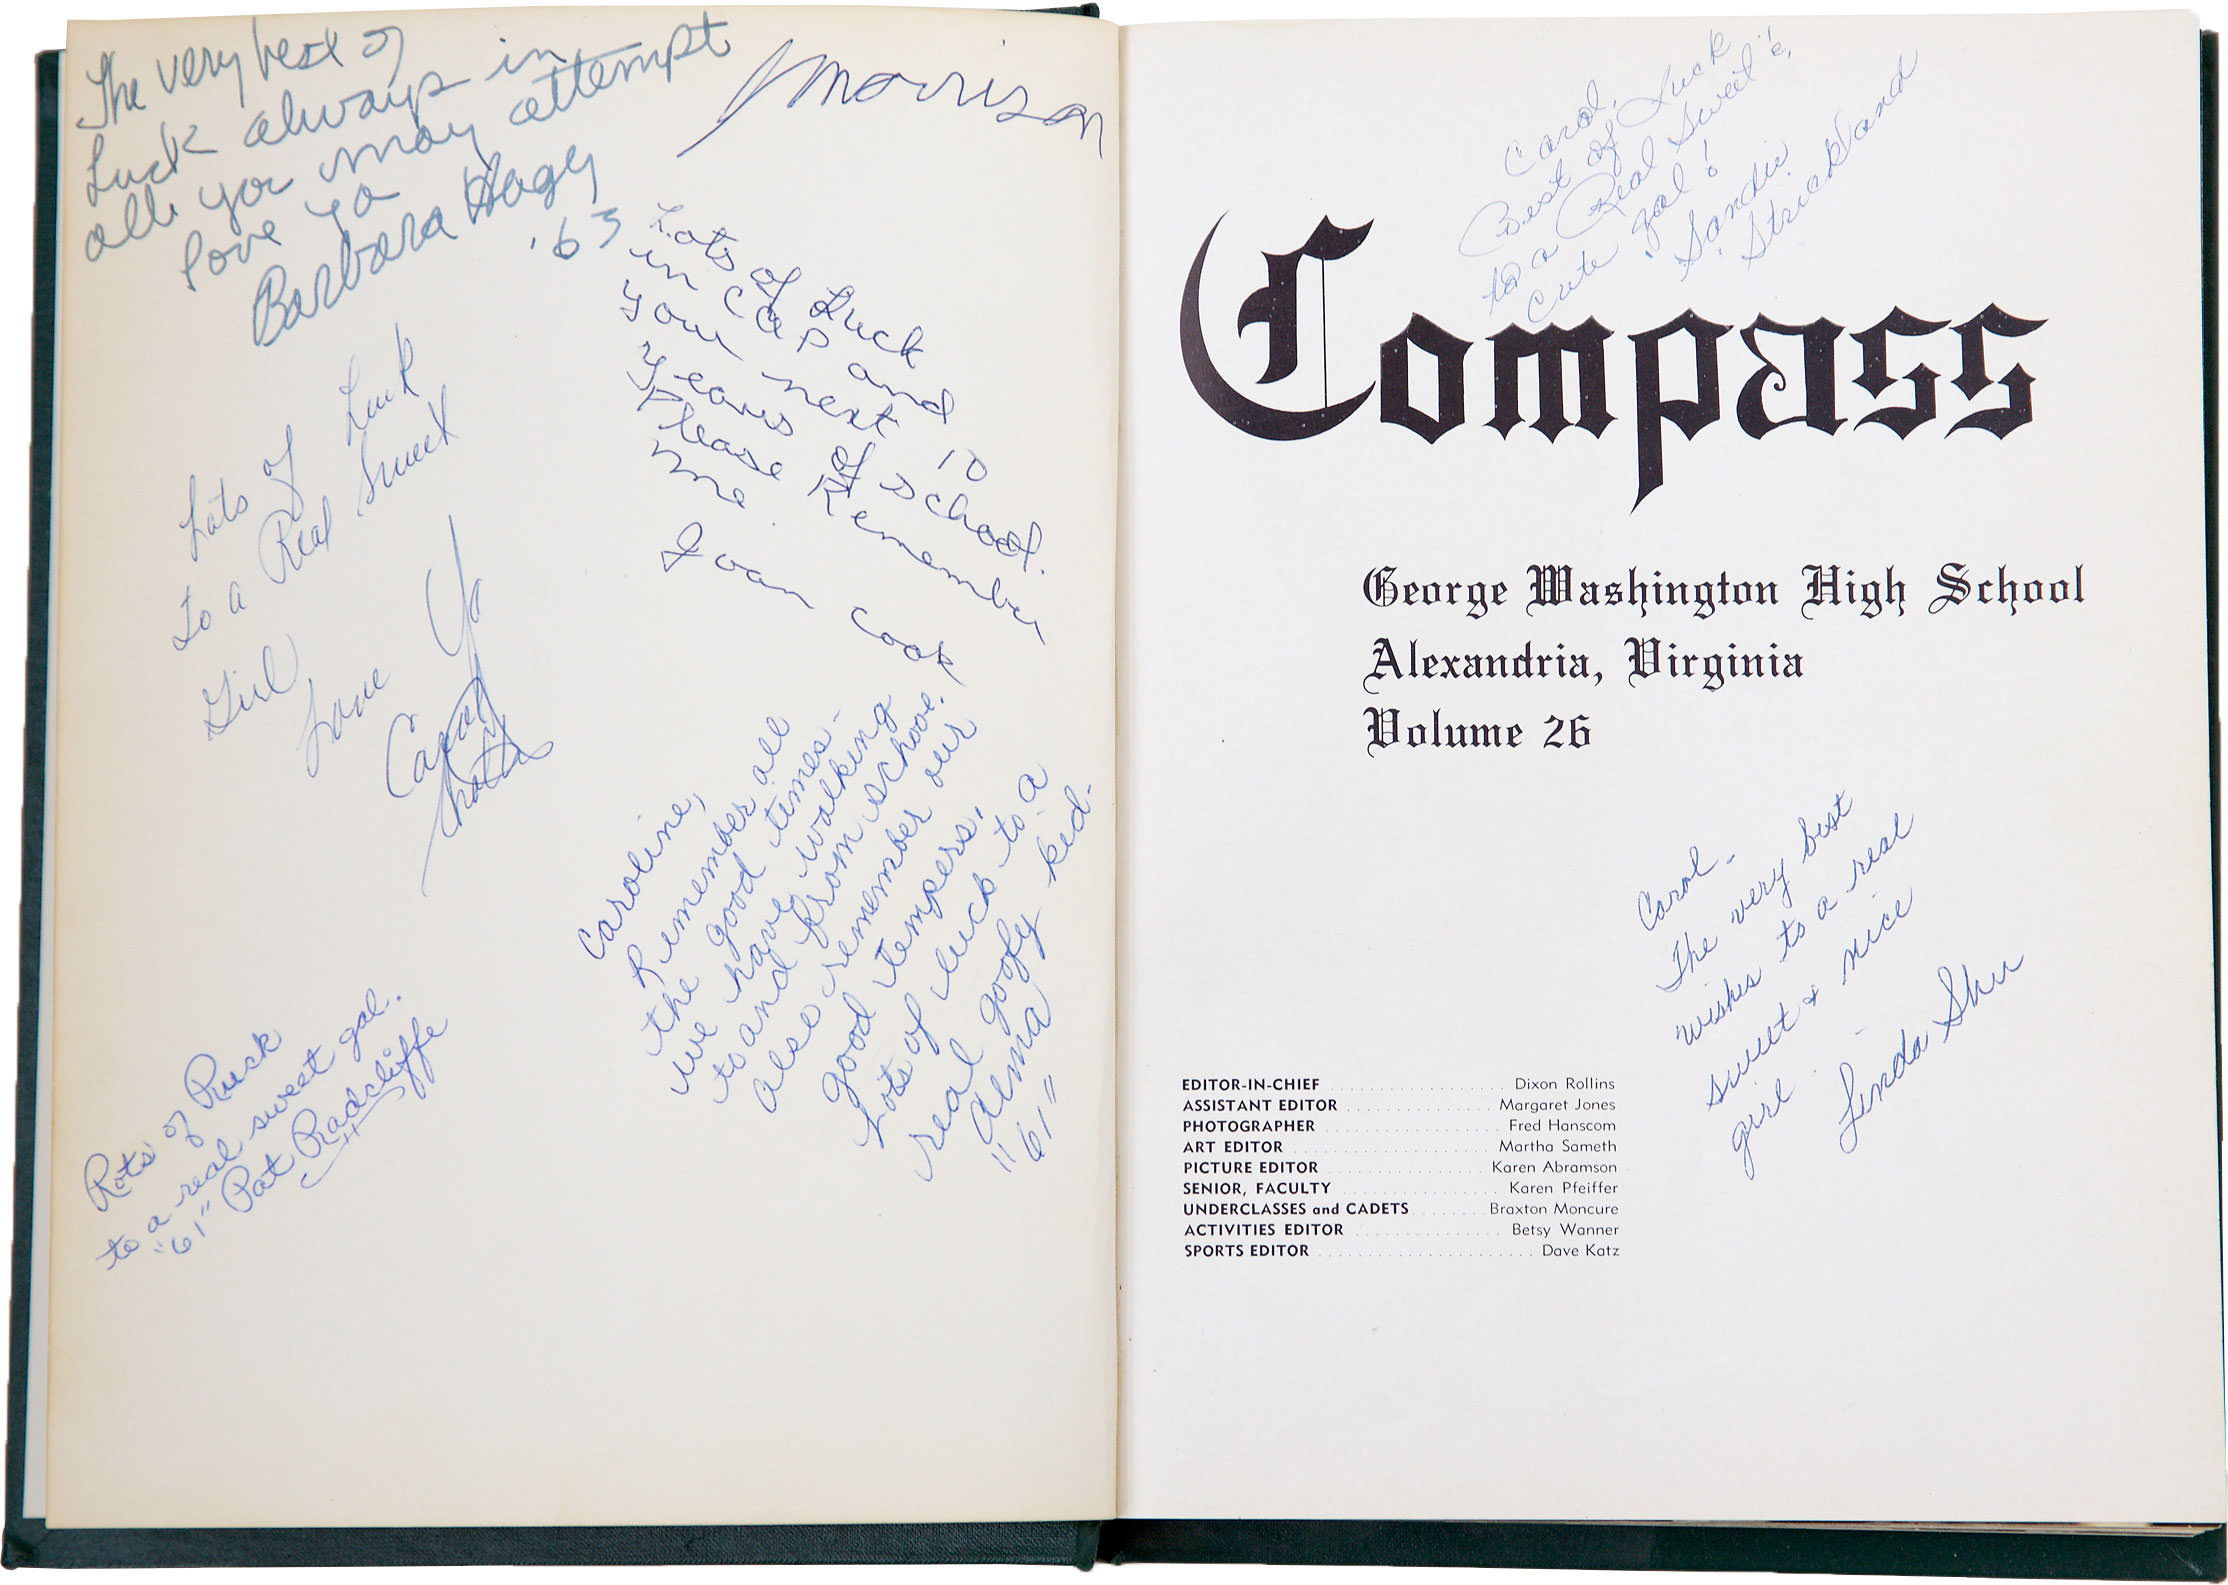 The very best of
Luck always in
all you may attempt
love ya
Barbara Hagy
'63
JMorrison
Lots of Luck
in Cap and
your next 10
years of school.
Please Remember
me.
Lots of Luck
to a Real Sweet
Girl
Love Ya
Carol
Caroline,
Remember all
the good times-
we have walking
to and from school.
Also remember our
good tempers,
Lots of luck to a
real goofy kid-
Alma
"61"
Rots of Ruck
to a real sweet gal.
"61" Pat Radcliffe
Carol,
Best of Luck
to a Real Sweet &
cute gal!
Sandie
Strickland
Compass
George Washington High School
Alexandria, Virginia
Volume 26
Carol-
The very best
wishes to a real
sweet & nice
girl
Linda
EDITOR-IN-CHIEF . . . . . . . . . . . . . . . . . . . . Dixon Rollins
ASSISTANT EDITOR . . . . . . . . . . . . . . . . . Margaret Jones
PHOTOGRAPHER . . . . . . . . . . . . . . . . . . . . Fred Hanscom
ART EDITOR . . . . . . . . . . . . . . . . . . . . . . Martha Sameth
PICTURE EDITOR . . . . . . . . . . . . . . . . . . . Karen Abramson
SENIOR, FACULTY . . . . . . . . . . . . . . . . . . Karen Pfeiffer
UNDERCLASSES and CADETS . . . . . . . . Braxton Moncure
ACTIVITIES EDITOR . . . . . . . . . . . . . . . . . Betsy Wanner
SPORTS EDITOR . . . . . . . . . . . . . . . . . . . . . . Dave Katz